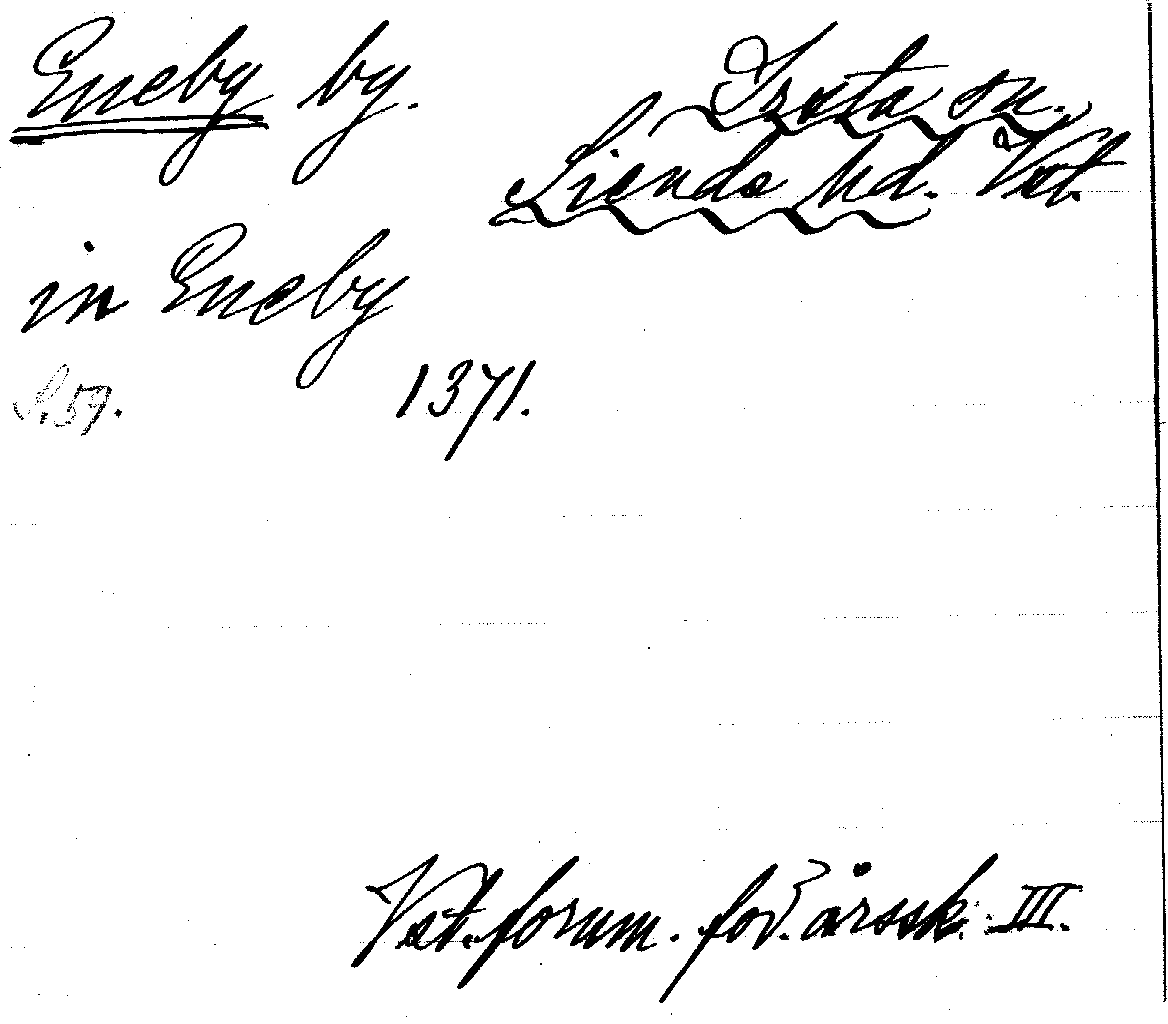 Eneby by.
Irsta sn.
Siende hd. Vst.
in Eneby
S. 59.
1371.
Vst. fornm. för. årssk. III.